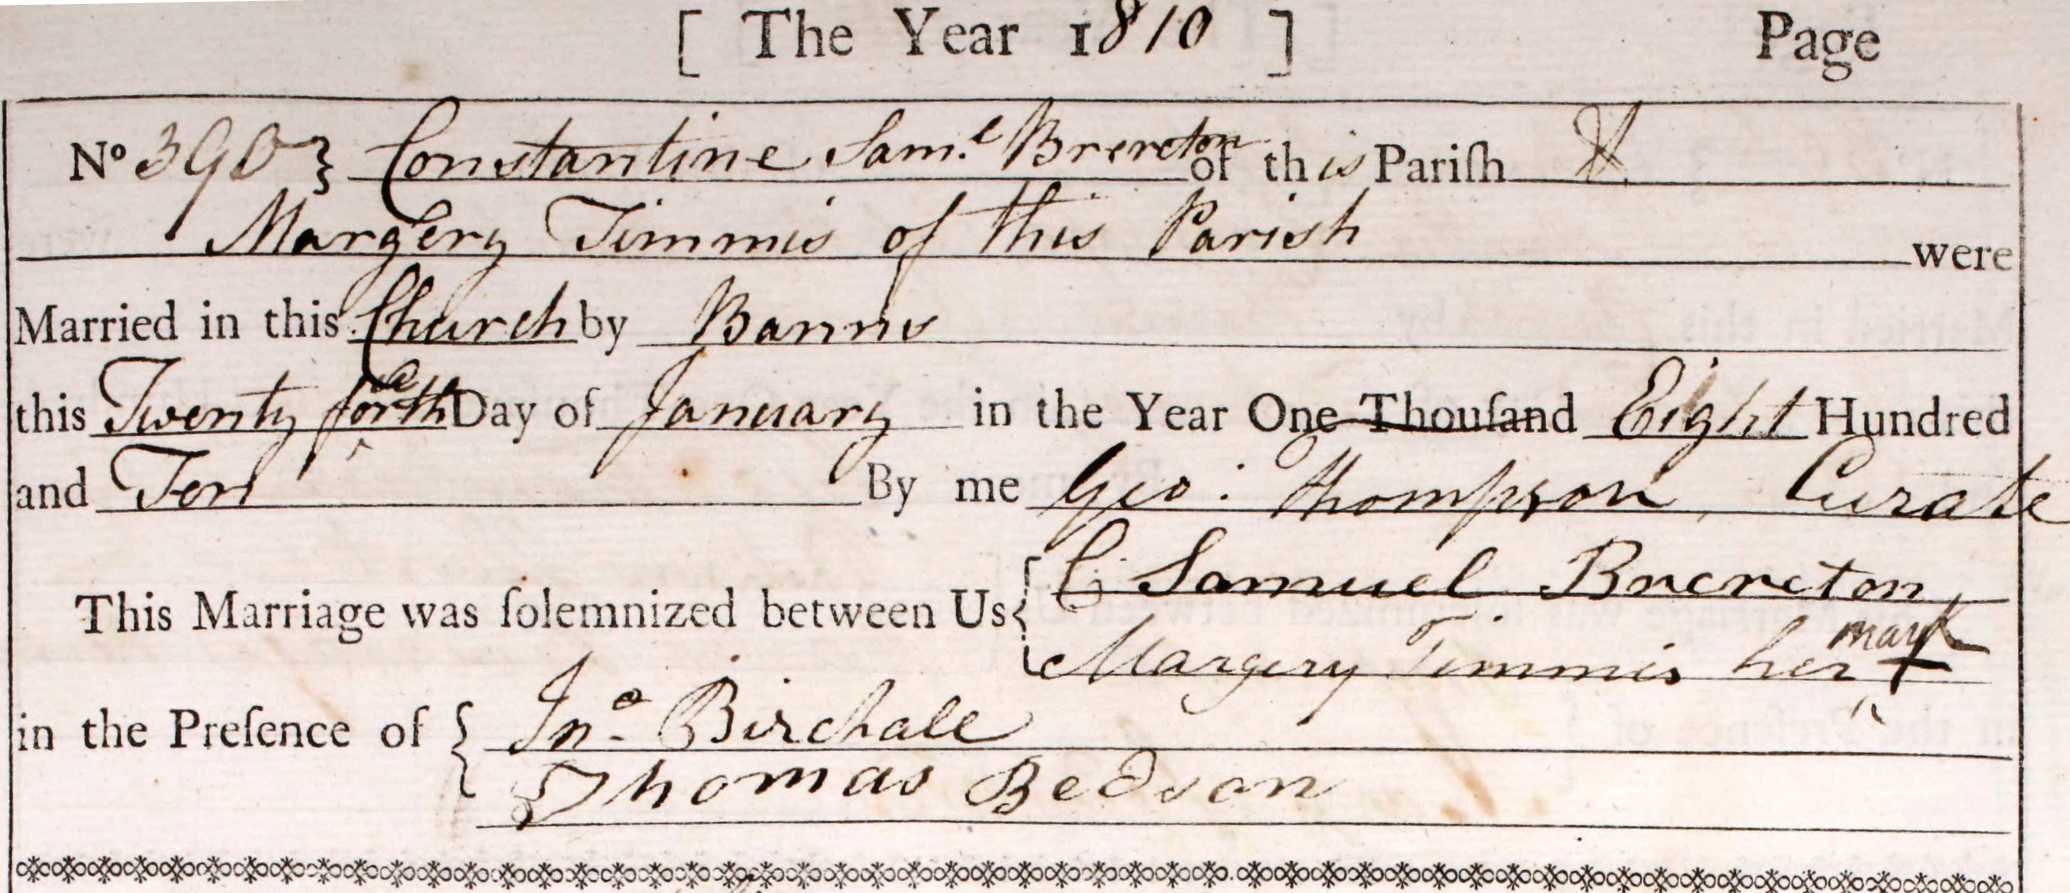 [ The Year 1810 ] Page
No 390 } Constantine Sam.l Brereton of this Pariſh &
Margery Timmis of this Parish were
Married in this Church by Banns
this Twenty fourth Day of January in the Year One Thouſand Eight Hundred
and Ten By me Geo: Thompson, Curate
This Marriage was ſolemnized between Us { C: Samuel Brereton
Margery Timmis her mark +
in the Preſence of { Jno. Birchall
Thomas Bedson